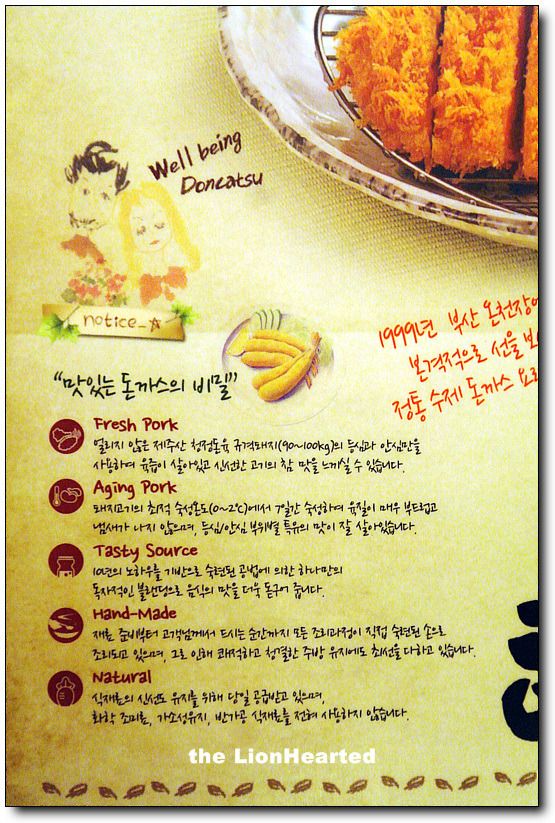 Well being
Doncatsu
notice_☆
1999년 부산 온천장에
본격적으로 선을 보
정통 수제 돈까스 요리
"맛있는 돈까스의 비밀"
Fresh Pork
얼리지 않은 제주산 청정돈육 규격돼지(90~100kg)의 등심과 안심만을
사용하여 육즙이 살아있고 신선한 고기의 참 맛을 느끼실 수 있습니다.
Aging Pork
돼지고기의 최적 숙성온도(0~2℃)에서 7일간 숙성하여 육질이 매우 부드럽고
냄새가 나지 않으며, 등심/안심 부위별 특유의 맛이 잘 살아있습니다.
Tasty Source
10년의 노하우를 기반으로 숙련된 공법에 의한 하나만의
독자적인 블랜딩으로 음식의 맛을 더욱 돋구어 줍니다.
Hand-Made
재료 준비부터 고객님께서 드시는 순간까지 모든 조리과정이 직접 숙련된 손으로
조리되고 있으며, 그로 인해 쾌적하고 청결한 주방 유지에도 최선을 다하고 있습니다.
Natural
식재료의 신선도 유지를 위해 당일 공급받고 있으며,
화학 조미료, 가소성유지, 반가공 식재료를 전혀 사용하지 않습니다.
the LionHearted